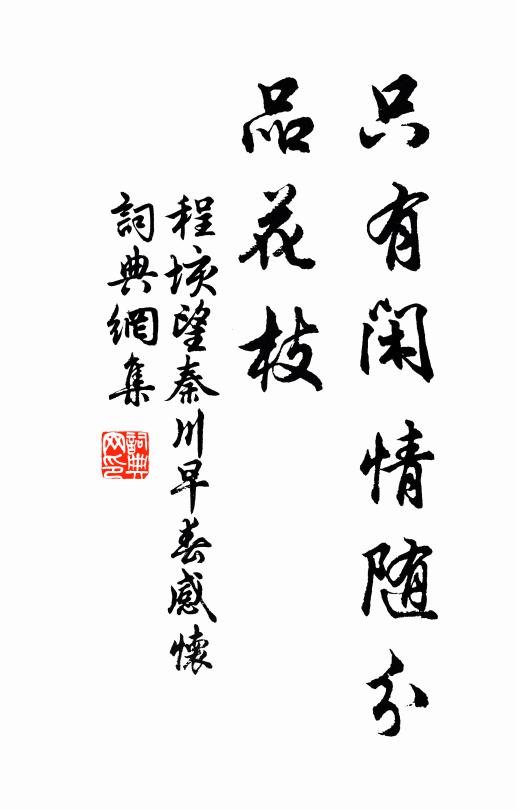 只有闲情随分
品花枝
程垓望秦川早春感懷
詞典網集
詞典网印